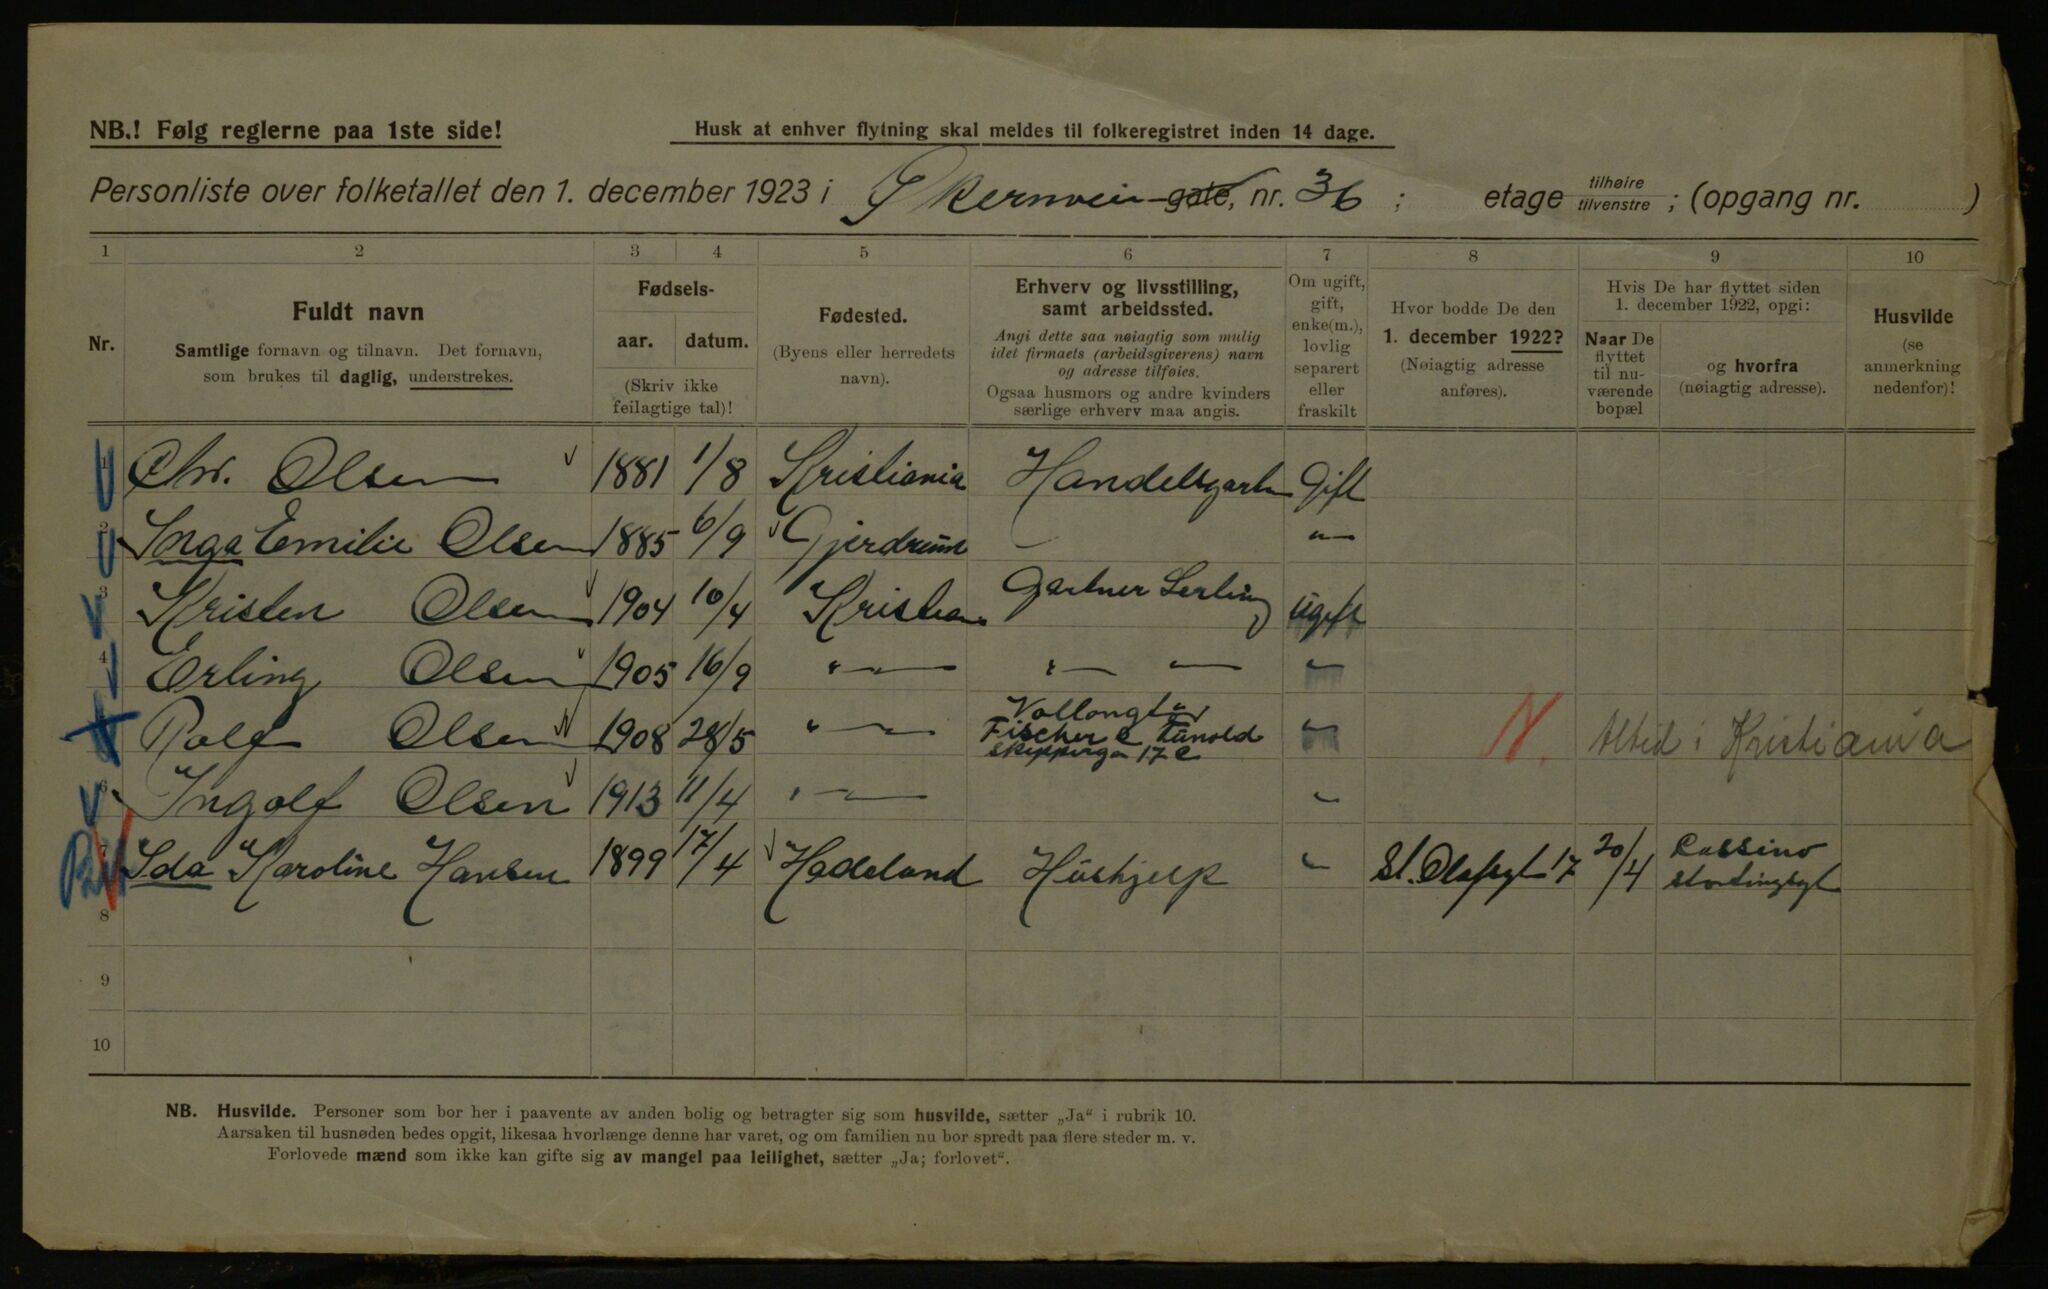 NB.! Følg reglerne paa 1ste side!
Husk at enhver flytning skal meldes til folkeregistret inden 14 dage.
Personliste over folketallet den 1. december 1923 i Økernveien gate, nr. 36 ; etage tilhøire tilvenstre ; (opgang nr. )
1 2 3 4 5 6 7 8 9 10
Nr.
Fuldt navn
Samtlige fornavn og tilnavn. Det fornavn,
som brukes til daglig, understrekes.
Fødsels-
aar. datum.
(Skriv ikke
feilagtige tal)!
Fødested.
(Byens eller herredets
navn).
Erhverv og livsstilling,
samt arbeidssted.
Angi dette saa nøiagtig som mulig
idet firmaets (arbeidsgiverens) navn
og adresse tilføies.
Ogsaa husmors og andre kvinders
særlige erhverv maa angis.
Om ugift,
gift,
enke(m.),
lovlig
separert
eller
fraskilt
Hvor bodde De den
1. december 1922?
(Nøiagtig adresse
anføres).
Hvis De har flyttet siden
1. december 1922, opgi:
Naar De
flyttet
til nu-
værende
bopæl
og hvorfra
(nøiagtig adresse).
Husvilde
(se
anmerkning
nedenfor)!
1 Chr. Olsen 1881 1/8 Kristiania Handelsgartn Gift
2 Inga Emilie Olsen 1885 6/9 Gjerdrum — "—
3 Kristen Olsen 1904 10/4 Kristian Gartner Lerling ugift
4 Erling Olsen 1905 16/9 "— "— — "
Rolf Olsen 1908 28/5 "— Vollongtør "
Fischer & Tunold
Skippergn 17 C
N. Altid i Kristiania
6 Ingolf Olsen 1913 11/4 "— "
7 Ida Karoline Hansen 1899 17/4 Hadeland Hushjelp " St. Olafsgt 17 20/4 Cassino
Stortingsgt
8
9
10
NB. Husvilde. Personer som bor her i paavente av anden bolig og betragter sig som husvilde, sætter „Ja“ i rubrik 10.
Aarsaken til husnøden bedes opgit, likesaa hvorlænge denne har varet, og om familien nu bor spredt paa flere steder m. v.
Forlovede mænd som ikke kan gifte sig av mangel paa leilighet, sætter „Ja; forlovet“.